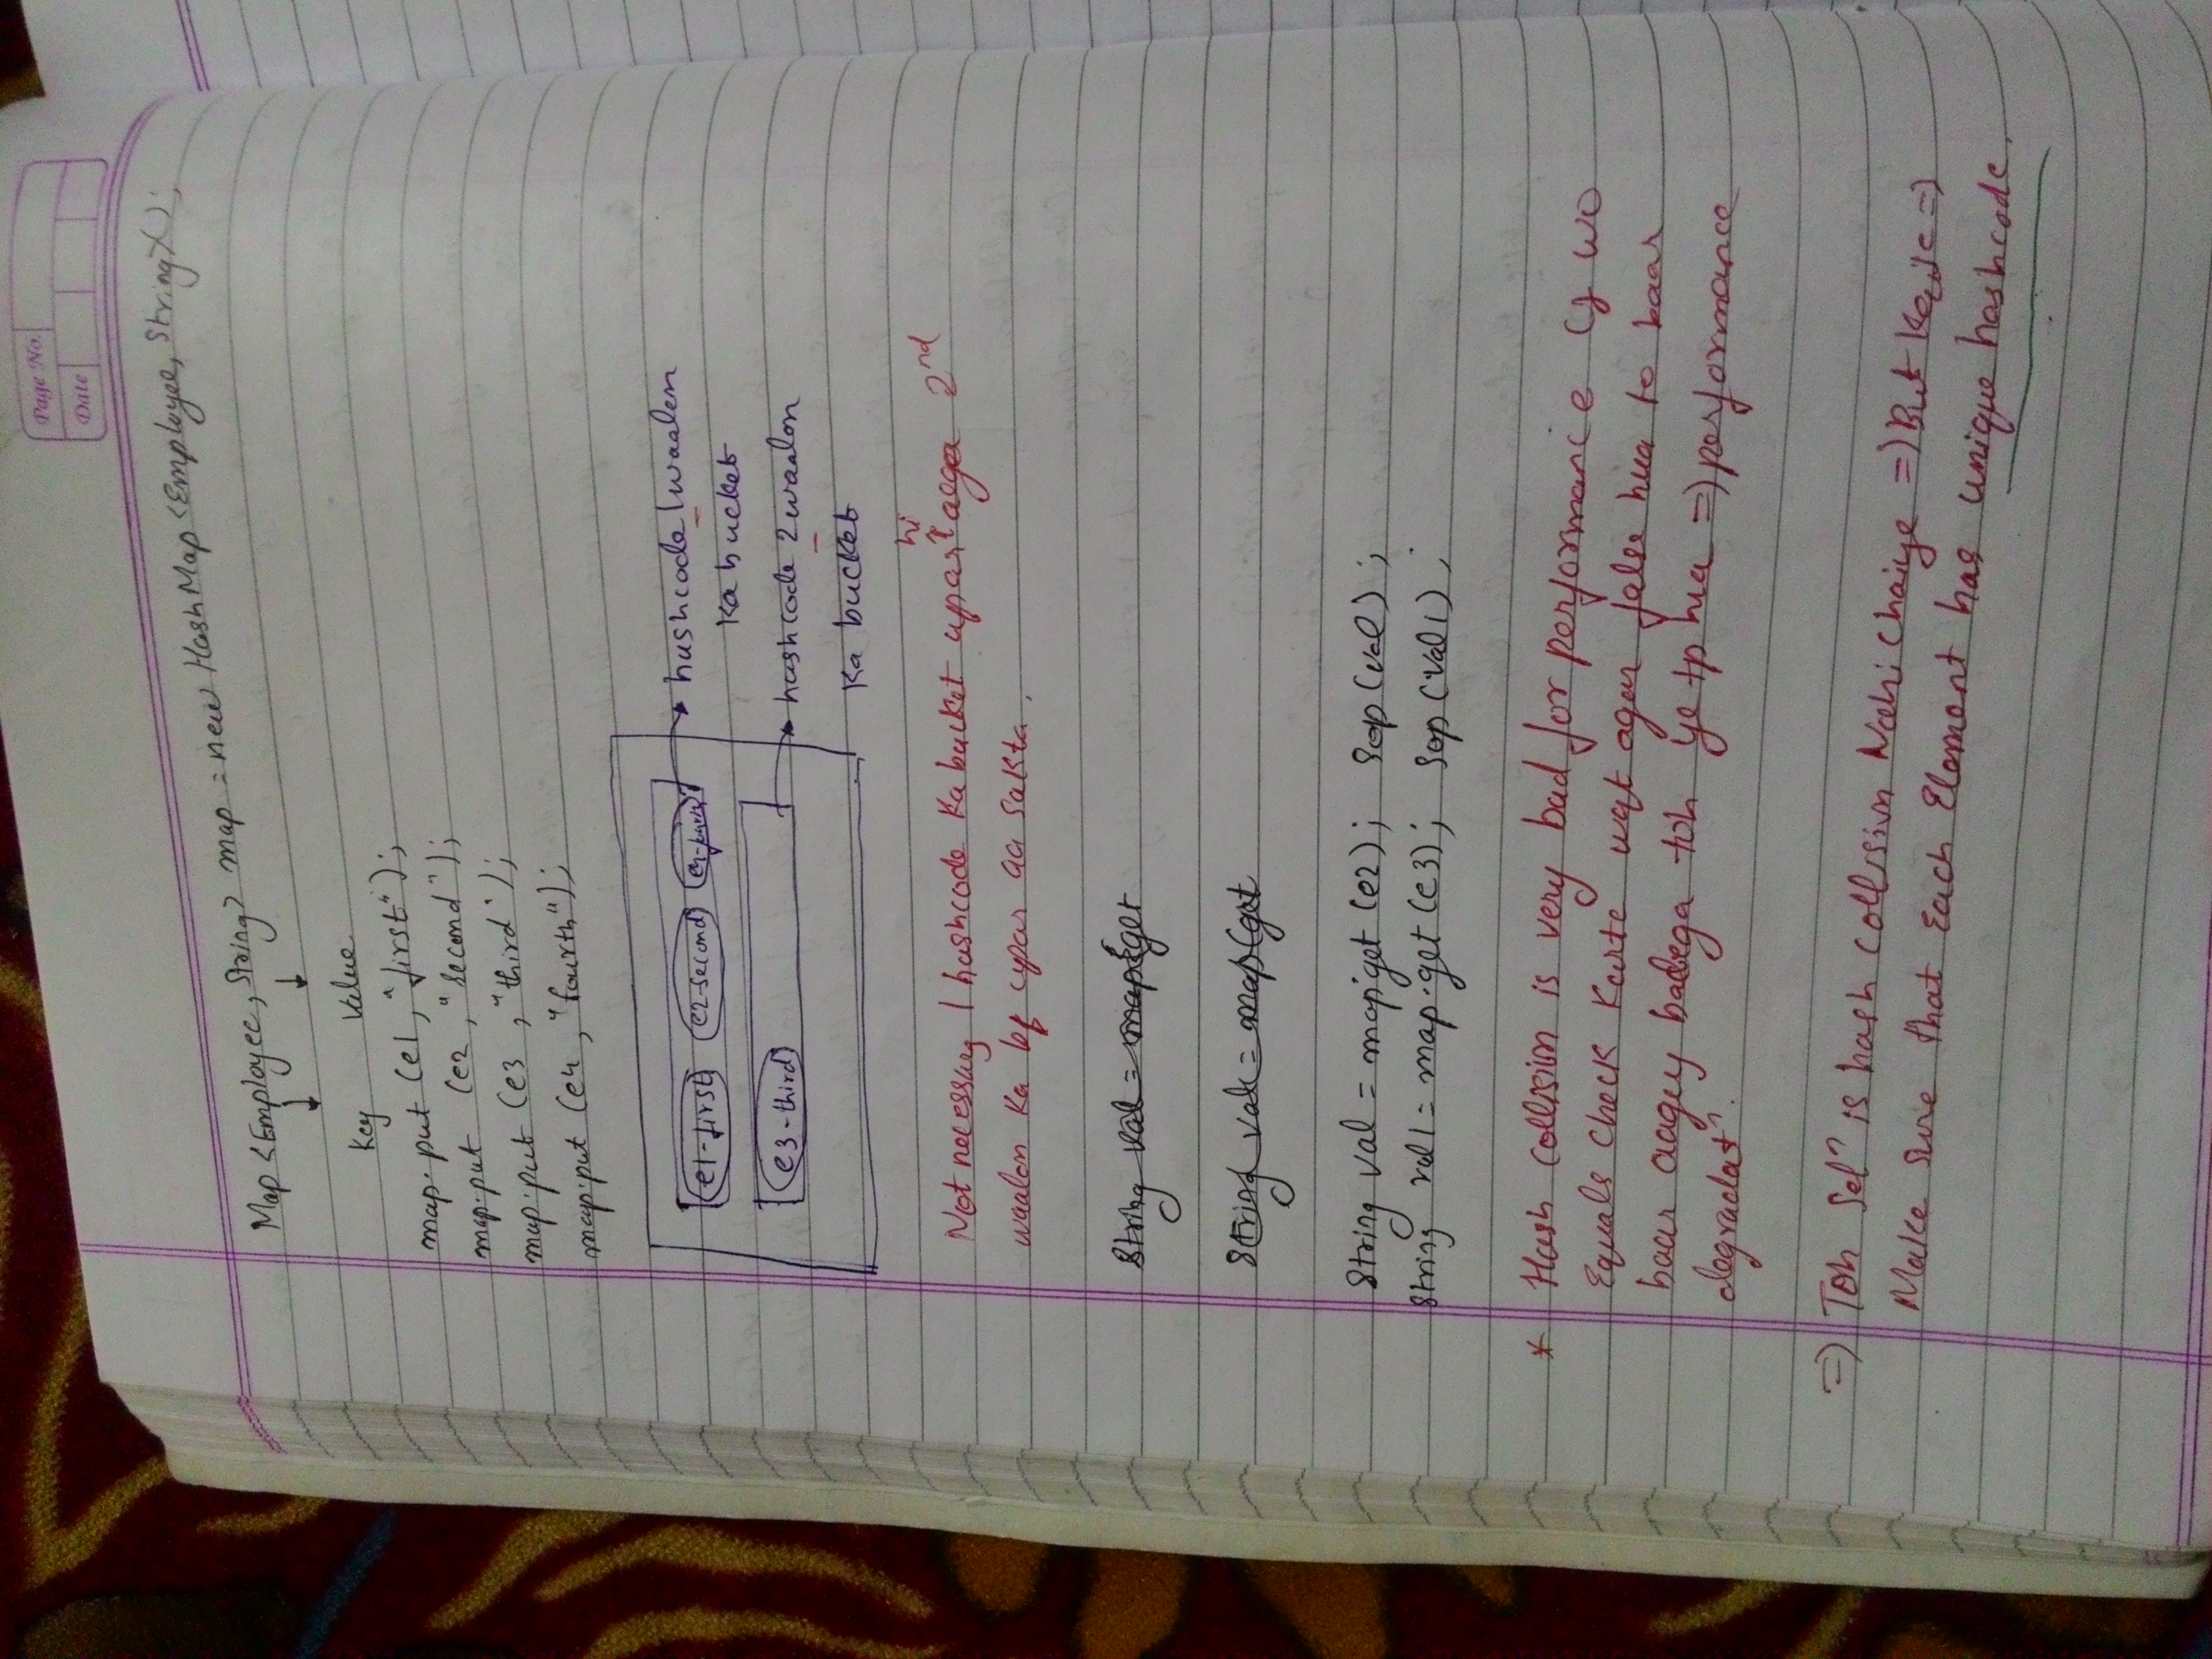 Page No.
Date
Map <Employee, String> map = new HashMap <Employee, String>();
↓ ↓
Key Value
map.put (e1, "first");
map.put (e2, "second");
map.put (e3, "third");
map.put (e4, "fourth");
e1-first e2-second e4-fourth → hashcode 1 waalon
Ka bucket
e3-third → hashcode 2 waalon
Ka bucket
hi
Not necessary 1 hashcode Ka bucket upar aega 2nd
waalon Ka bf upar aa sakta.
String val = map get
String val = map(get
String val = map.get (e2); Sop (val);
String val1 = map.get (e3); Sop (val1);
* Hash collision is very bad for performance Cz wo
Equals check Karte wqt agar false hua to baar
baar aagey badega toh ye tp hua => performance
degradatn.
=> Toh Soln is hash collision Nahi Chaiye => But Kaise =>
Make sure that Each Element has unique hashcode.